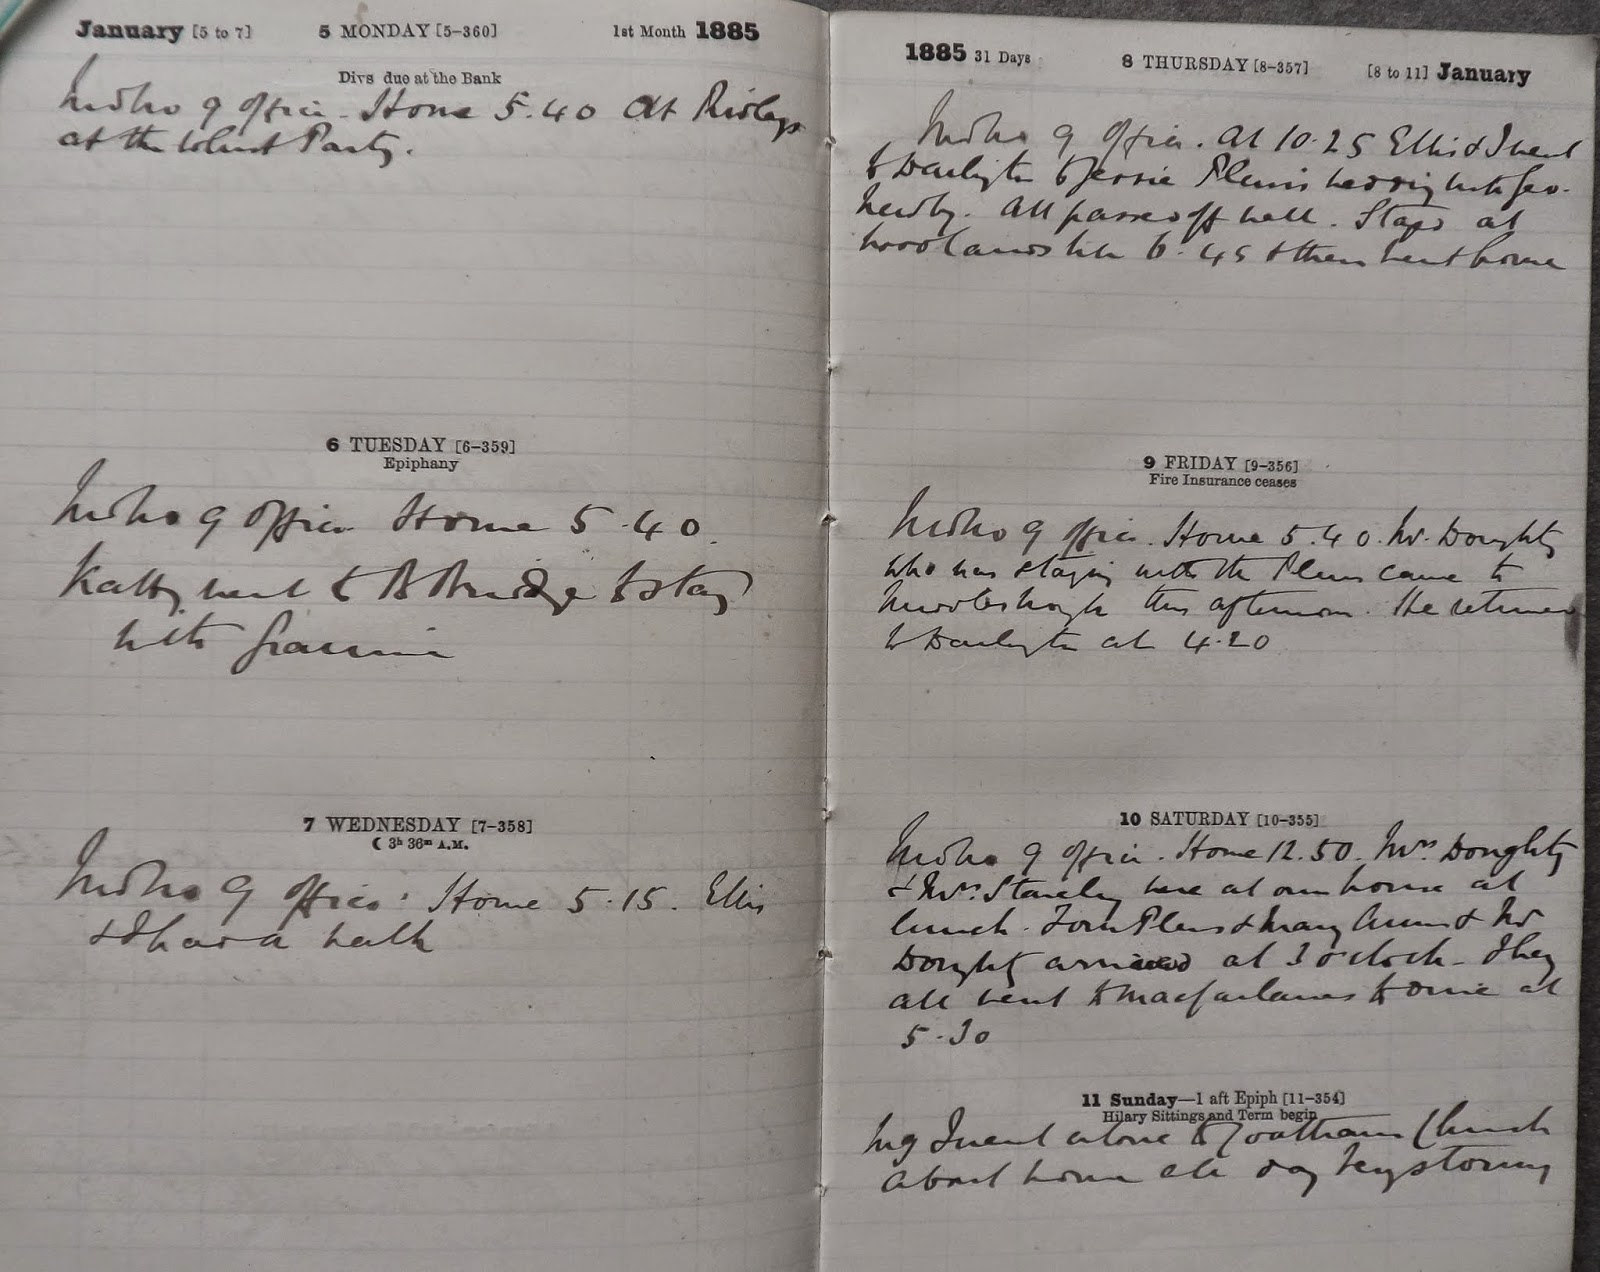 January [5 to 7] 5 MONDAY [5–360] 1st Month 1885
Divs due at the Bank
M'bro 9 office. Home 5.40 At Ridleys
at the Whist Party.
6 TUESDAY [6–359]
Epiphany
M'bro 9 office Home 5.40.
Katty went to to stay
with Grannie
7 WEDNESDAY [7–358]
☾ 3h 36m A.M.
M'bro 9 office. Home 5.15. Ellis
& I had a walk
1885 31 Days 8 THURSDAY [8–357] [8 to 11] January
M'bro 9 office. At 10.25 Ellis & I went
to Darlington to Jessie Plews wedding with Geo.
Newby. All passed off well. Stayed at
Woodlands till 6.45 & then went home
9 FRIDAY [9–356]
Fire Insurance ceases
M'bro 9 office. Home 5.40. Mr. Doughty
who was staying with the Plews came to
Middlesbrough this afternoon. He returned
to Darlington at 4.20
10 SATURDAY [10–355]
M'bro 9 office. Home 12.50. Mrs Doughty
& Mrs. here at our house at
lunch. Tom Plews & Mary Ann & Mr
Doughty arrived at 3 o'clock. They
all went to Macfarlanes to dine at
5.30
11 Sunday—1 aft Epiph [11–354]
Hilary Sittings and Term begin
Mg I went alone to Coatham Church
About home all day very stormy